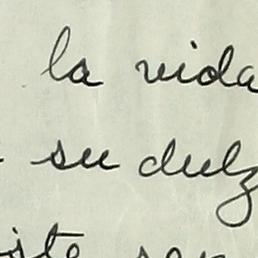 la vida
su dulz
iste